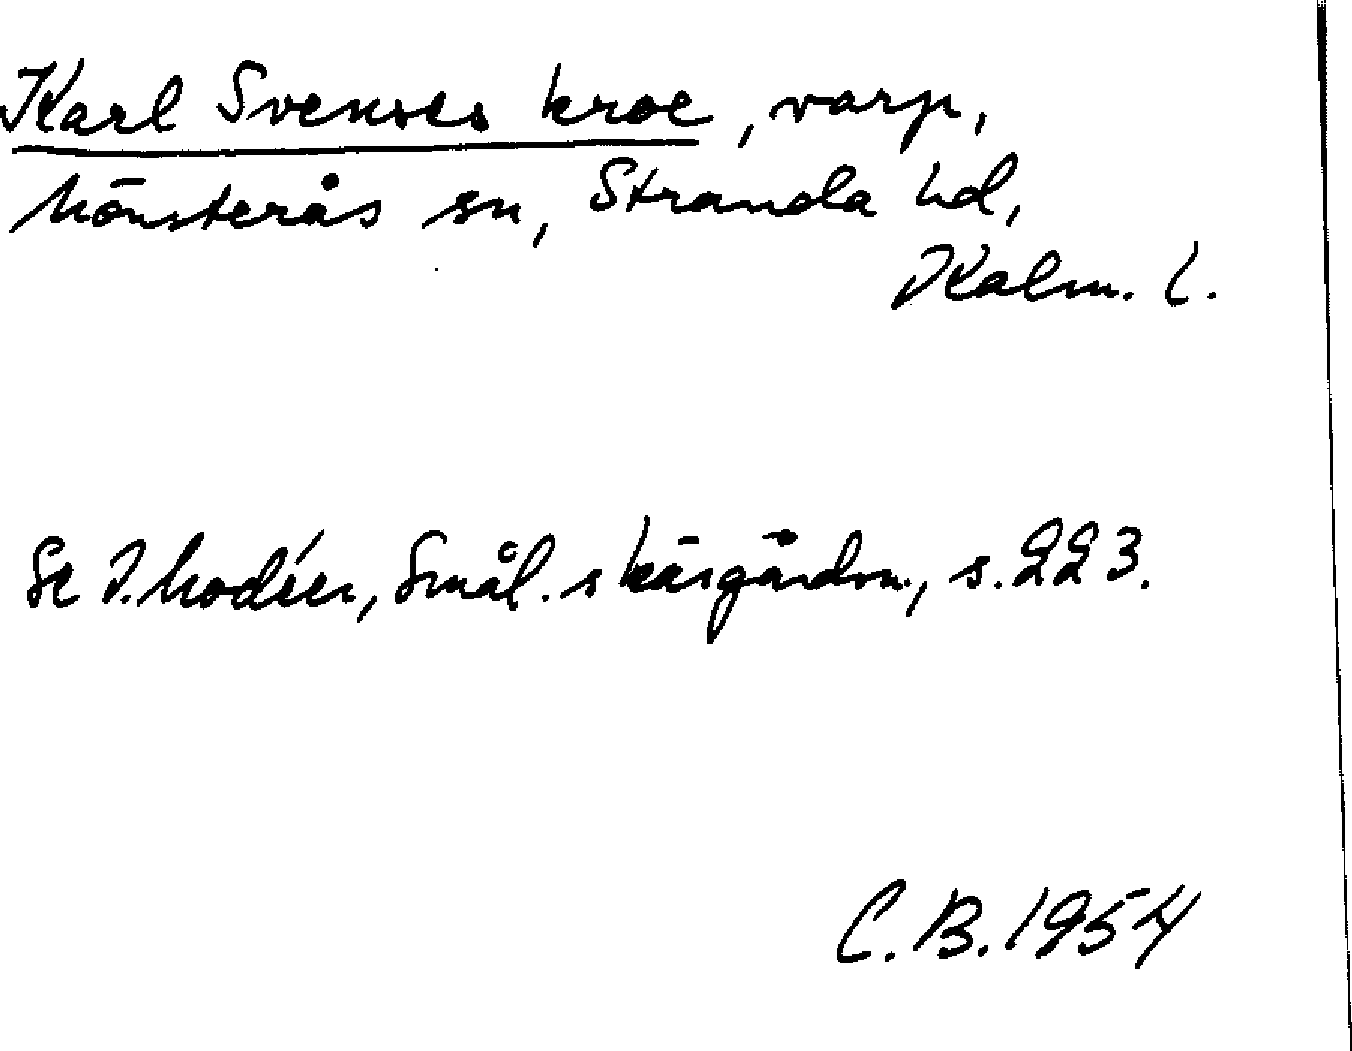 Karl Svenses kroe, varp,
Mönsterås sn, Stranda hd,
Kalm. l.
Se I. Modéer, Smål. skärgårdsn., s. 223.
C. B. 1954